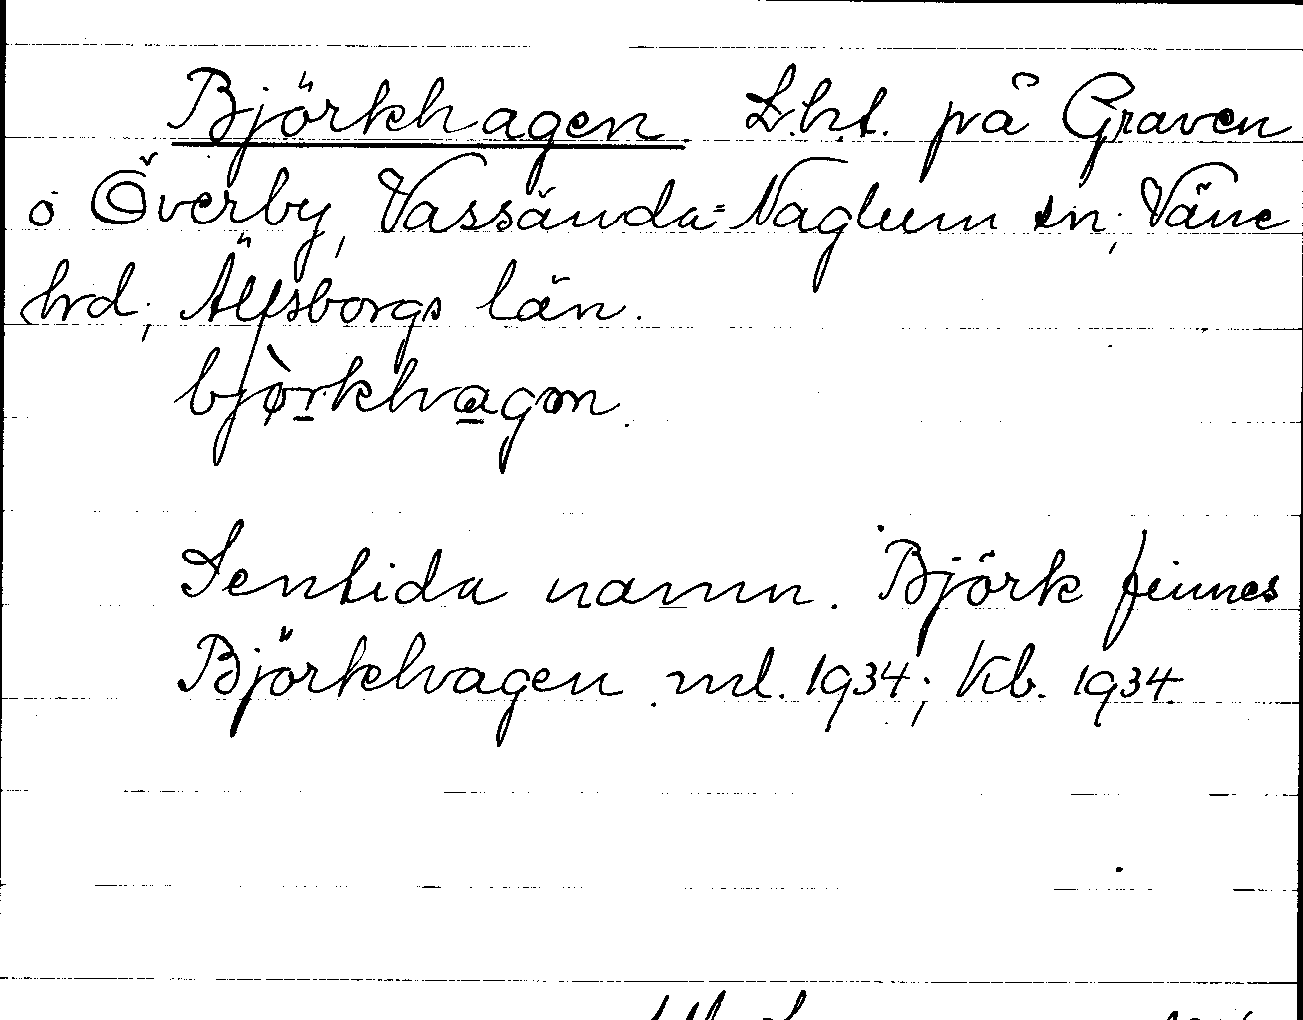 Björkhagen. L.h.t. på Graven
o Överby, Vassända-Naglum sn, Väne
hrd, Älfsborgs län.
bjø̀rkhagǝn.
Sentida namn. Björk finnes
Björkhagen ml. 1934; Kb. 1934